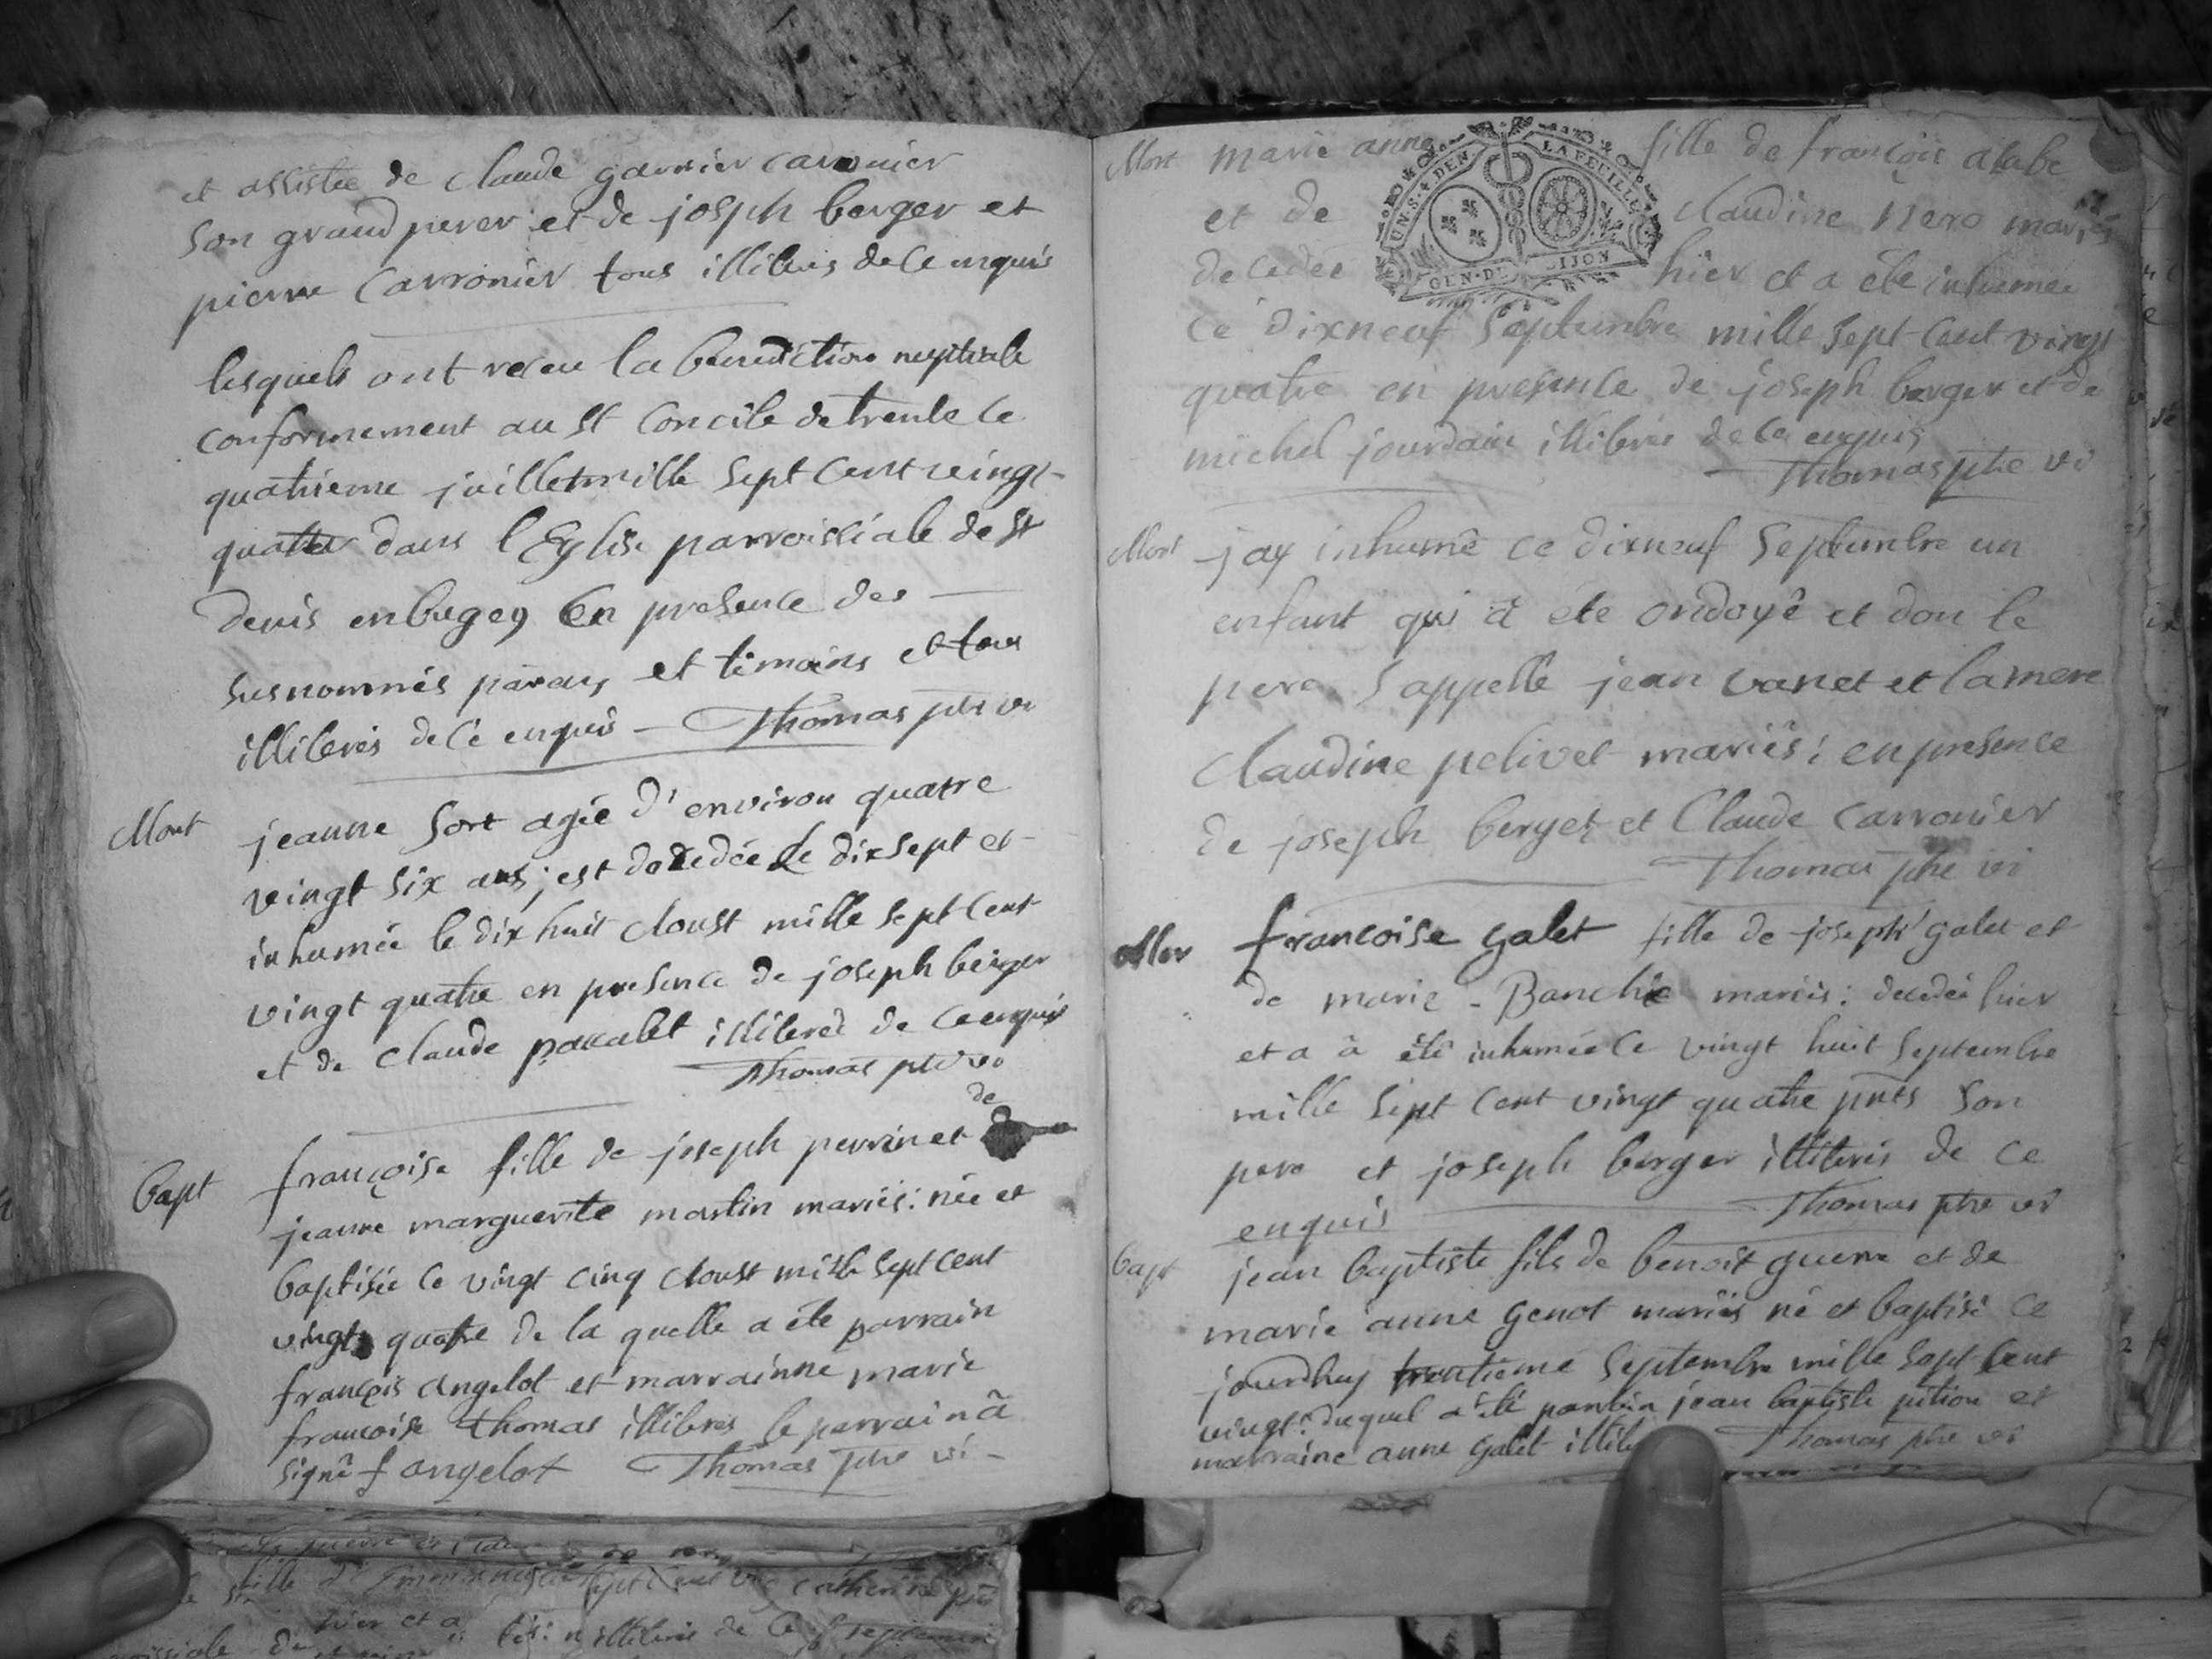 et assistée de claude garnier carronier
son grand perer et de joseph berger et
pierre Carronier tous illiterés de ce enquis
lesquels ont receu la benediction nuptiale
conformement au st Concile de trente ce
quatrieme juillet mille sept cent vingt
quatre dans l'Eglise parroissiale de st
denis en bugey En presence des
susnommés parens et témoins et tous
illiterés de ce enquis Thomas ptre vi
Mort jeanne Sort agée d'environ quatre
vingt six ans; est decedée Le dix sept et
inhumée le dix huit Aoust mille sept cent
vingt quatre en presence de joseph berger
et de claude illiteres de ce enquis
Thomas ptre vi
de
Bapt françoise fille de joseph perrin et
jeanne marguerite martin mariés: née et
baptisée le vingt cinq Aoust mille sept cent
vingt quatre de la quelle a été parrain
françois angelot et marrainne marie
francoise Thomas illiteres le parrain â
signé f angelot Thomas ptre vi
Mort marie anne fille de françois alabe
et de claudine Nero mariés
decedée hier et a été inhumée
ce dixneuf Septembre mille sept cent vingt
quatre en presence de joseph berger et de
michel jourdain illiterés de ce enquis
Thomas ptre vi
UN·S·4 DEN LA FEUILLE
GEN·DE DIJON
Mort j ay inhumé ce dixneuf Septembre un
enfant qui a été ondoyé et don le
pere s appelle jean vanet et la mere
Claudine pelivet mariés: en presence
de joseph berger et Claude carronier
Thomas ptre vi
Mor francoise galet fille de joseph galet et
de marie - Banchie mariés: decedée hier
et a à été inhumée le vingt huit Septembre
mille sept cent vingt quatre pnts son
pere et joseph berger illiterés de ce
enquis Thomas ptre vi
bapt jean baptiste fils de benoit guerre et de
marie anne genot mariés né et baptisé ce
jourdhuy trentieme Septembre mille sept cent
vingt: duquel a été parrain jean baptiste pition et
marraine anne galet Thomas ptre vi
hier et a